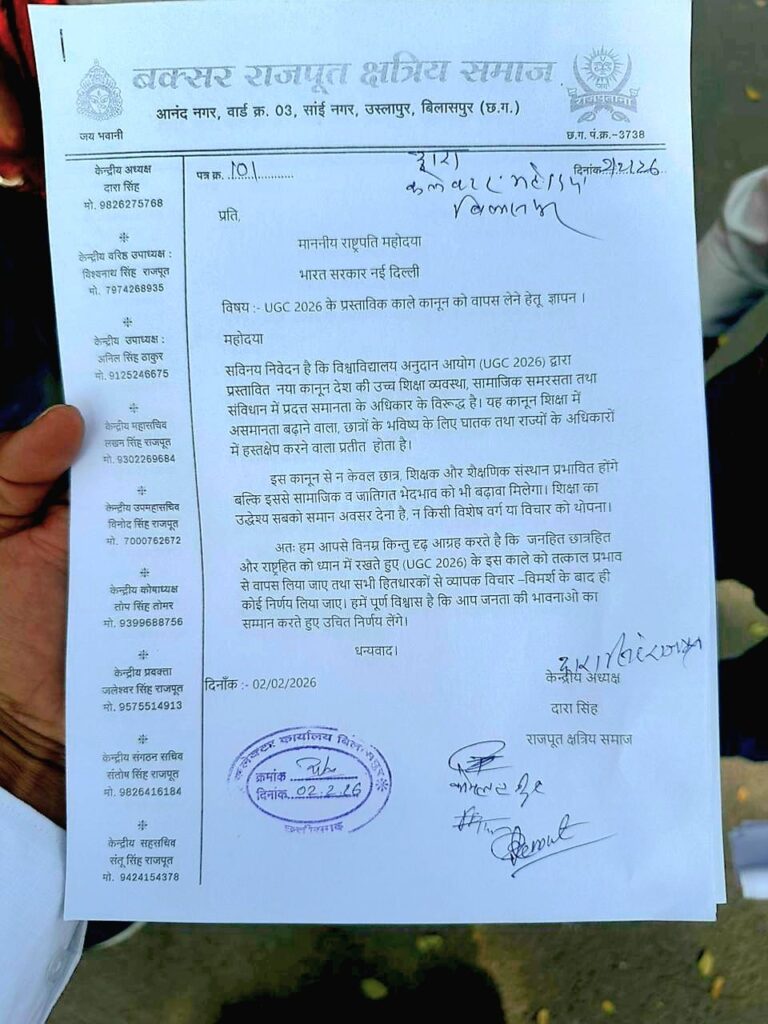 बक्सर राजपूत क्षत्रिय समाज
आनंद नगर, वार्ड क्र. 03, सांई नगर, उस्लापुर, बिलासपुर (छ.ग.)
जय भवानी
राजपूताना
छ.ग. पं.क्र.-3738
केन्द्रीय अध्यक्ष
दारा सिंह
मो. 9826275768
केन्द्रीय वरिष्ठ उपाध्यक्ष :
विश्वनाथ सिंह राजपूत
मो. 7974268935
केन्द्रीय उपाध्यक्ष :
अनिल सिंह ठाकुर
मो. 9125246675
केन्द्रीय महासचिव
लखन सिंह राजपूत
मो. 9302269684
केन्द्रीय उपमहासचिव
विनोद सिंह राजपूत
मो. 7000762672
केन्द्रीय कोषाध्यक्ष
तोप सिंह तोमर
मो. 9399688756
केन्द्रीय प्रवक्ता
जलेश्वर सिंह राजपूत
मो. 9575514913
केन्द्रीय संगठन सचिव
संतोष सिंह राजपूत
मो. 9826416184
केन्द्रीय सहसचिव
संतू सिंह राजपूत
मो. 9424154378
पत्र क्र. 101
द्वारा
बिलासपुर
दिनांक 2/2/26
प्रति,
माननीय राष्ट्रपति महोदया
भारत सरकार नई दिल्ली
विषय :- UGC 2026 के प्रस्ताविक काले कानून को वापस लेने हेतू ज्ञापन ।
महोदया
सविनय निवेदन है कि विश्वाविद्यालय अनुदान आयोग (UGC 2026) द्वारा
प्रस्तावित नया कानून देश की उच्च शिक्षा व्यवस्था, सामाजिक समरसता तथा
संविधान में प्रदत्त समानता के अधिकार के विरूद्ध है। यह कानून शिक्षा में
असमानता बढ़ाने वाला, छात्रों के भविष्य के लिए घातक तथा राज्यों के अधिकारों
में हस्तक्षेप करने वाला प्रतीत होता है।
इस कानून से न केवल छात्र, शिक्षक और शैक्षणिक संस्थान प्रभावित होंगे
बल्कि इससे सामाजिक व जातिगत भेदभाव को भी बढ़ावा मिलेगा। शिक्षा का
उद्धेश्य सबको समान अवसर देना है, न किसी विशेष वर्ग या विचार को थोपना।
अतः हम आपसे विनम्र किन्तु दृढ़ आग्रह करते है कि जनहित छात्रहित
और राष्ट्रहित को ध्यान में रखते हुए (UGC 2026) के इस काले को तत्काल प्रभाव
से वापस लिया जाए तथा सभी हितधारकों से व्यापक विचार –विमर्श के बाद ही
कोई निर्णय लिया जाए। हमें पूर्ण विश्वास है कि आप जनता की भावनाओ का
सम्मान करते हुए उचित निर्णय लेंगे।
धन्यवाद।
दिनाँक :- 02/02/2026
केन्द्रीय अध्यक्ष
दारा सिंह
राजपूत क्षत्रिय समाज
कलेक्टर कार्यालय बिलासपुर
क्रमांक
दिनांक 02.2.26
छत्तीसगढ़